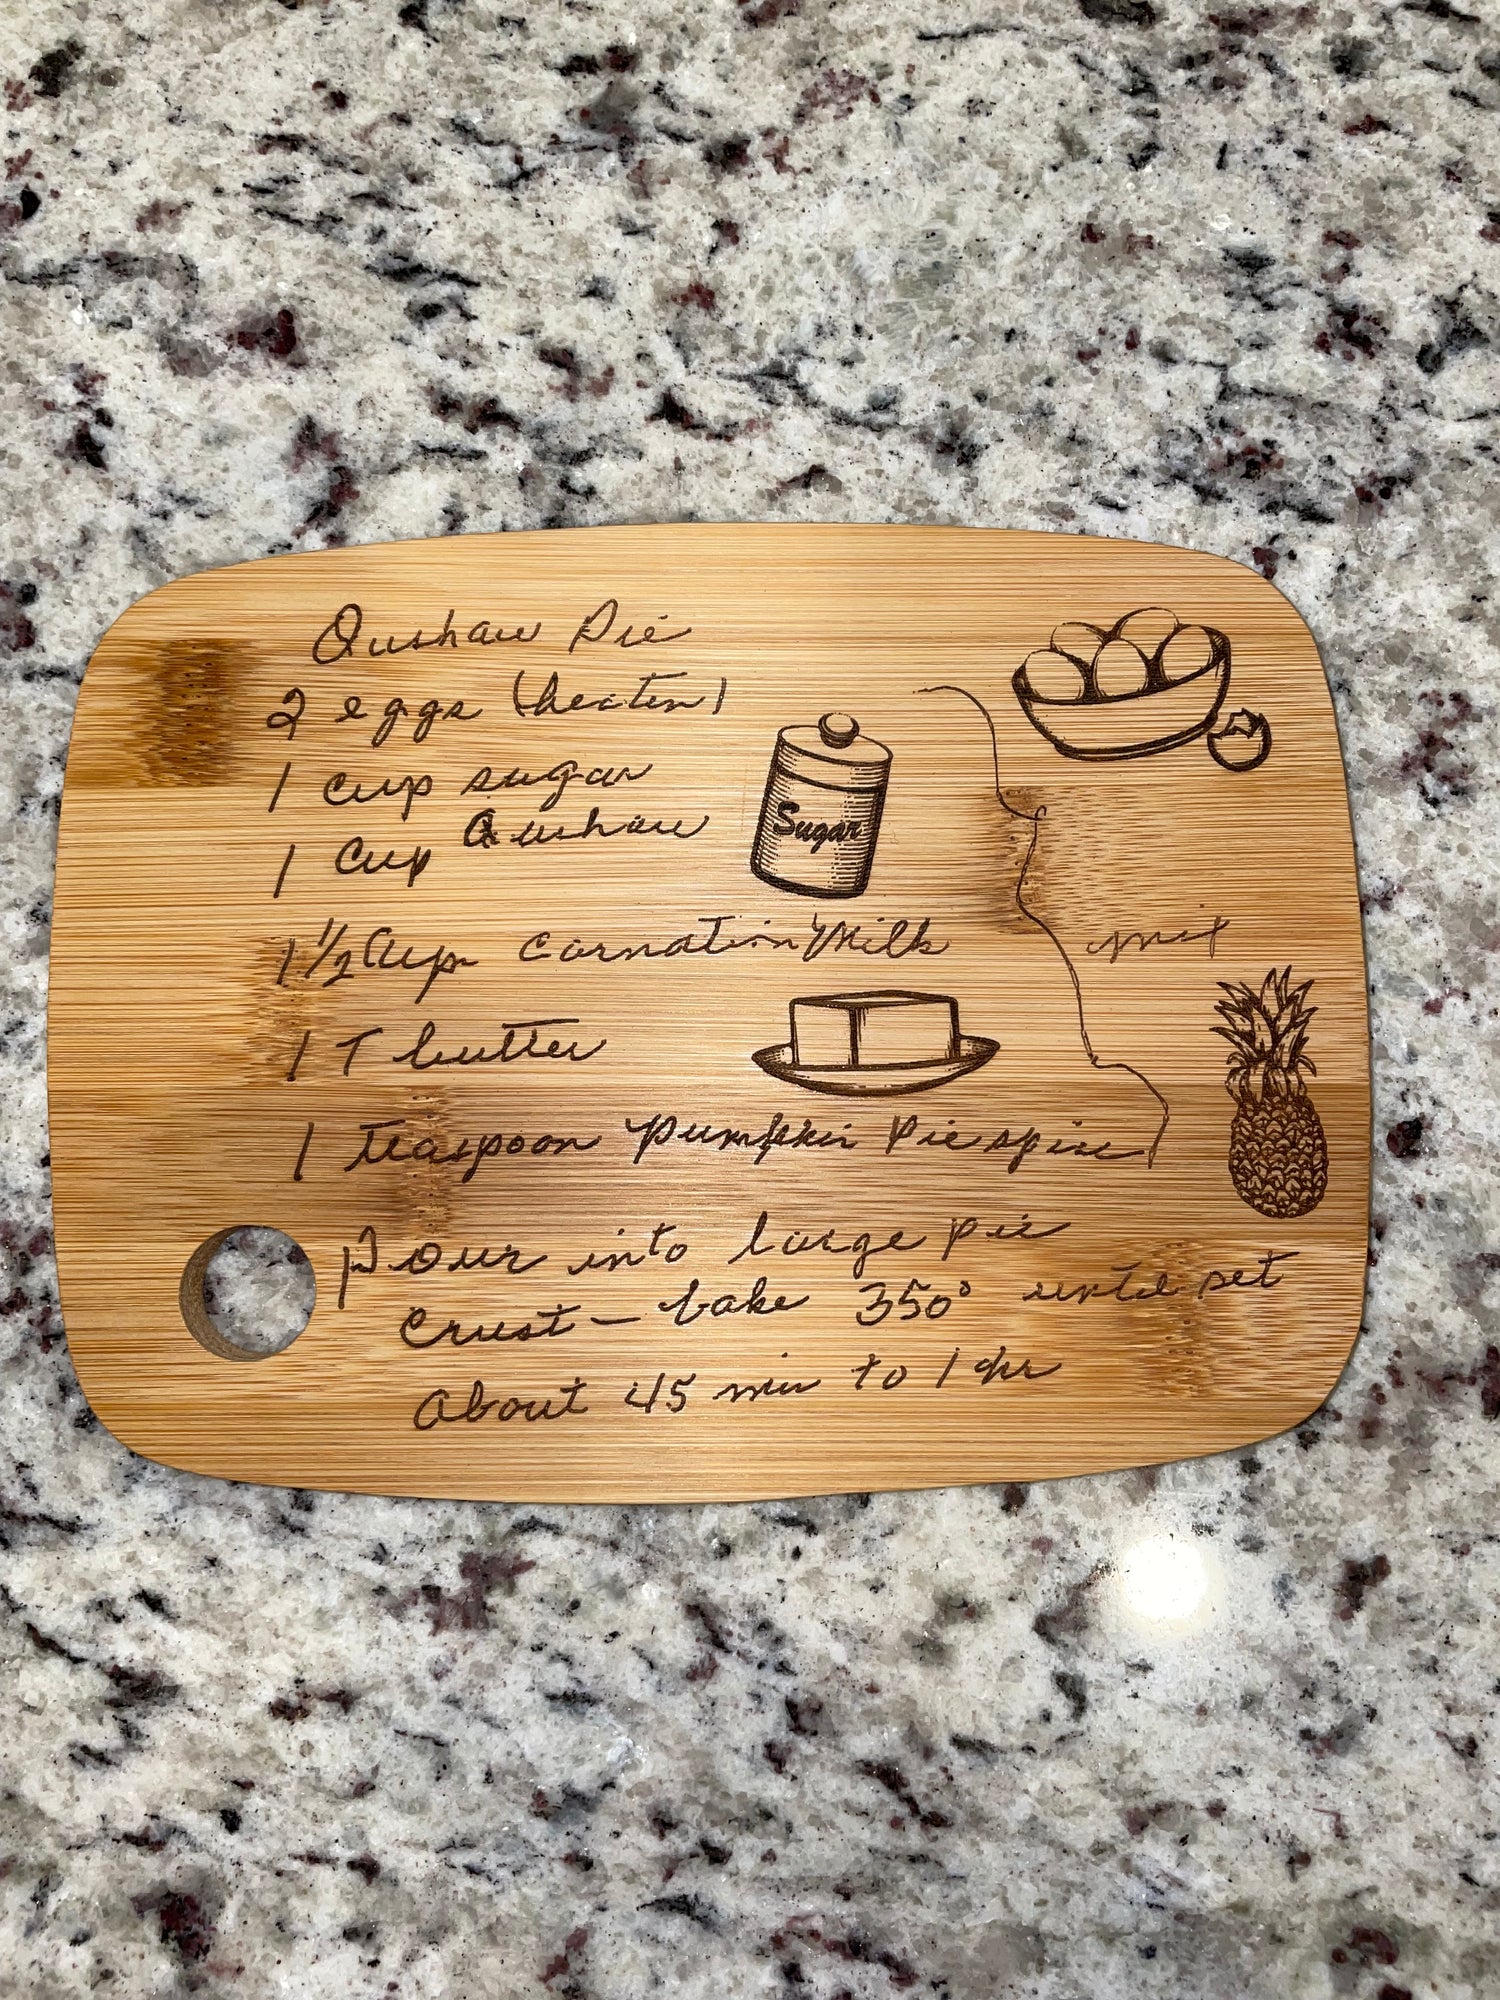 Qushaw Pie
2 eggs (beaten)
1 cup sugar
1 Cup Qushaw
Sugar
1 1/2 Cup Carnation Milk
mix
1 T butter
1 teaspoon pumpkin Pie spice
Pour into large pie
Crust - bake 350° until set
About 45 min to 1 hr